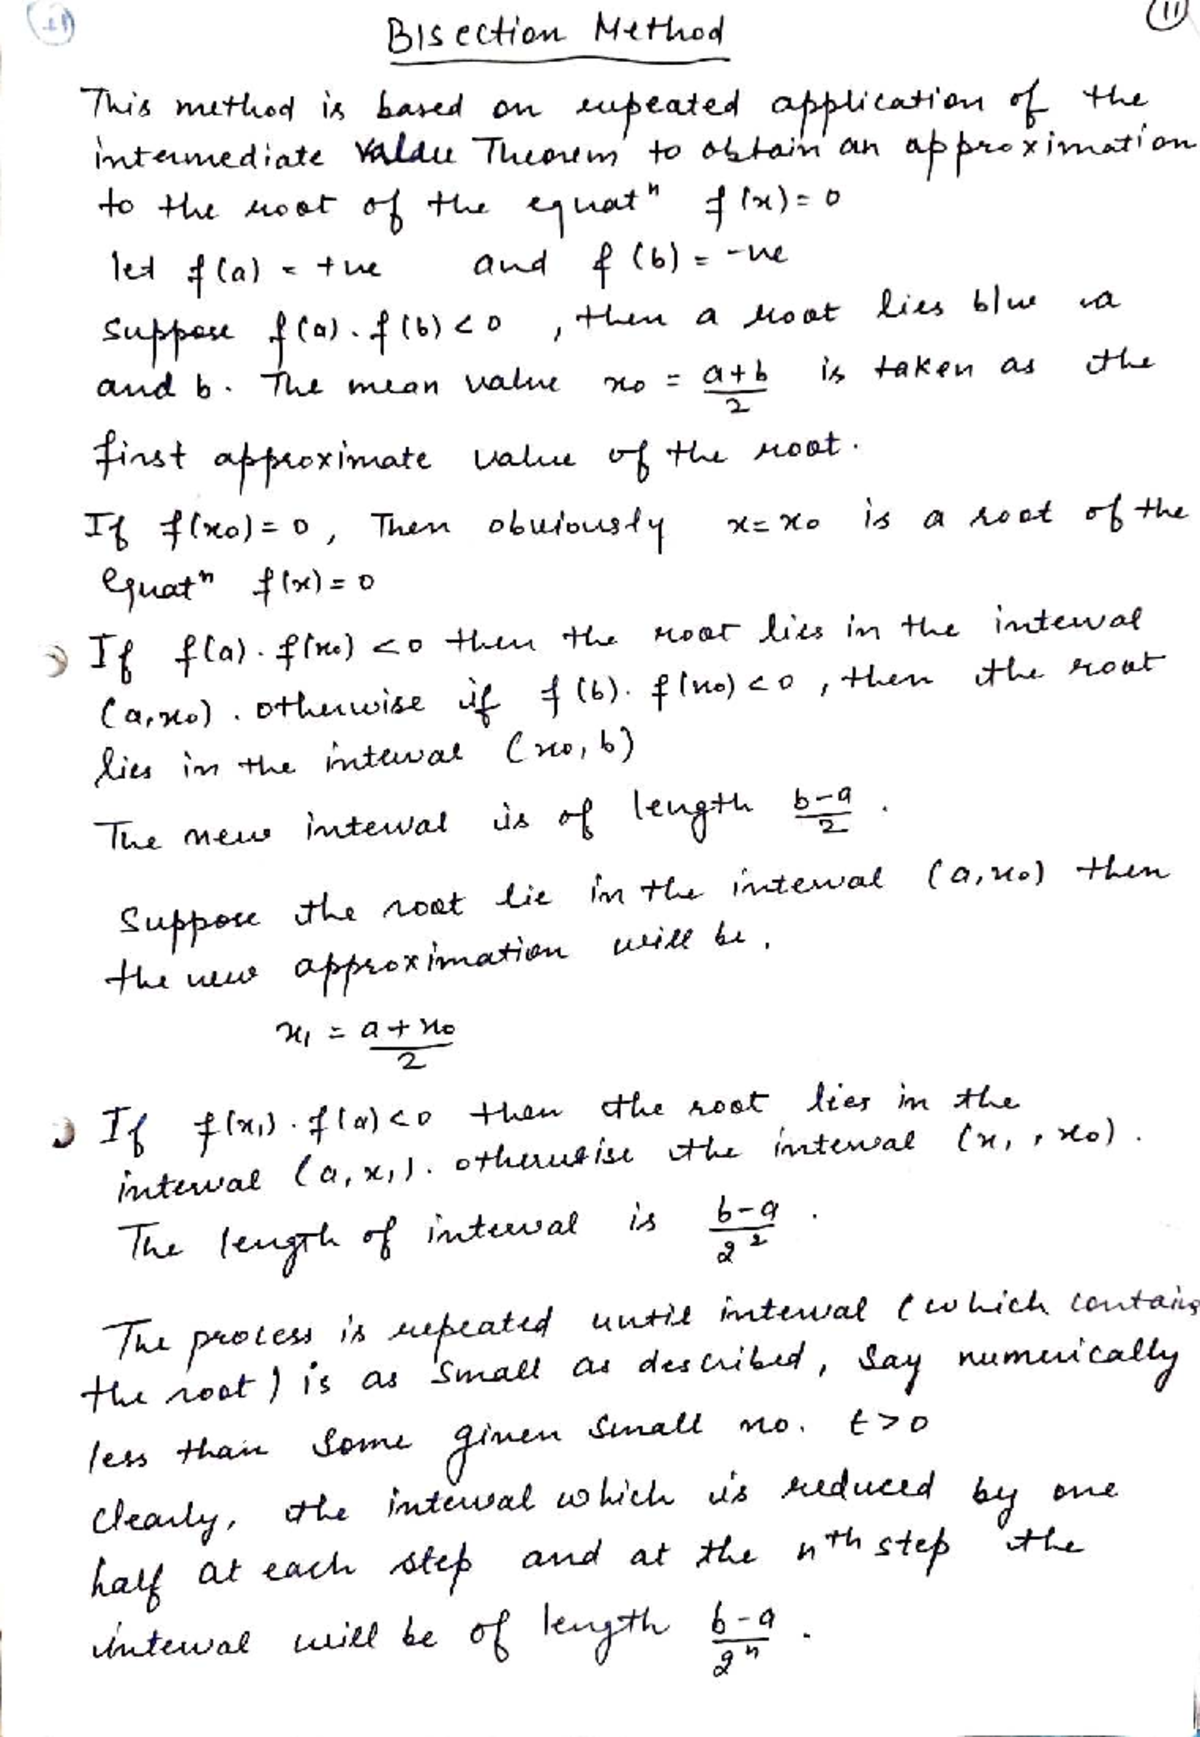 11
Bisection Method
This method is based on repeated application of the
intermediate value Theorem to obtain an approximation
to the root of the equatⁿ f(x)=0
let f(a) = +ve and f(b) = -ve
Suppose f(a).f(b)<0, then a root lies b/w a
and b. The mean value x₀ = (a+b)/2 is taken as the
first approximate value of the root.
If f(x₀)=0, Then obviously x=x₀ is a root of the
equatⁿ f(x)=0
If f(a).f(x₀)<0 then the root lies in the interval
(a,x₀). otherwise if f(b).f(x₀)<0, then the root
lies in the interval (x₀,b)
The new interval is of length (b-a)/2.
Suppose the root lie in the interval (a,x₀) then
the new approximation will be,
x₁ = (a+x₀)/2
If f(x₁).f(a)<0 then the root lies in the
interval (a,x₁). otherwise the interval (x₁,x₀).
The length of interval is (b-a)/2².
The process is repeated until interval (which contains
the root) is as small as described, say numerically
less than some given small no. t>0
Clearly, the interval which is reduced by one
half at each step and at the nth step the
interval will be of length (b-a)/2ⁿ.